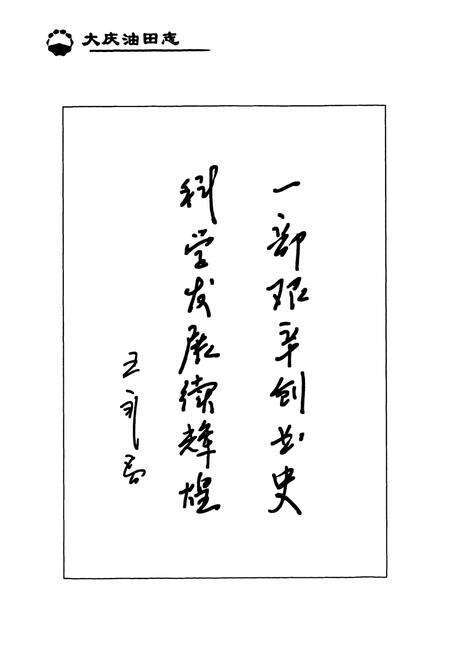 大庆油田志
一部艰辛创业史
科学发展续辉煌
王永春